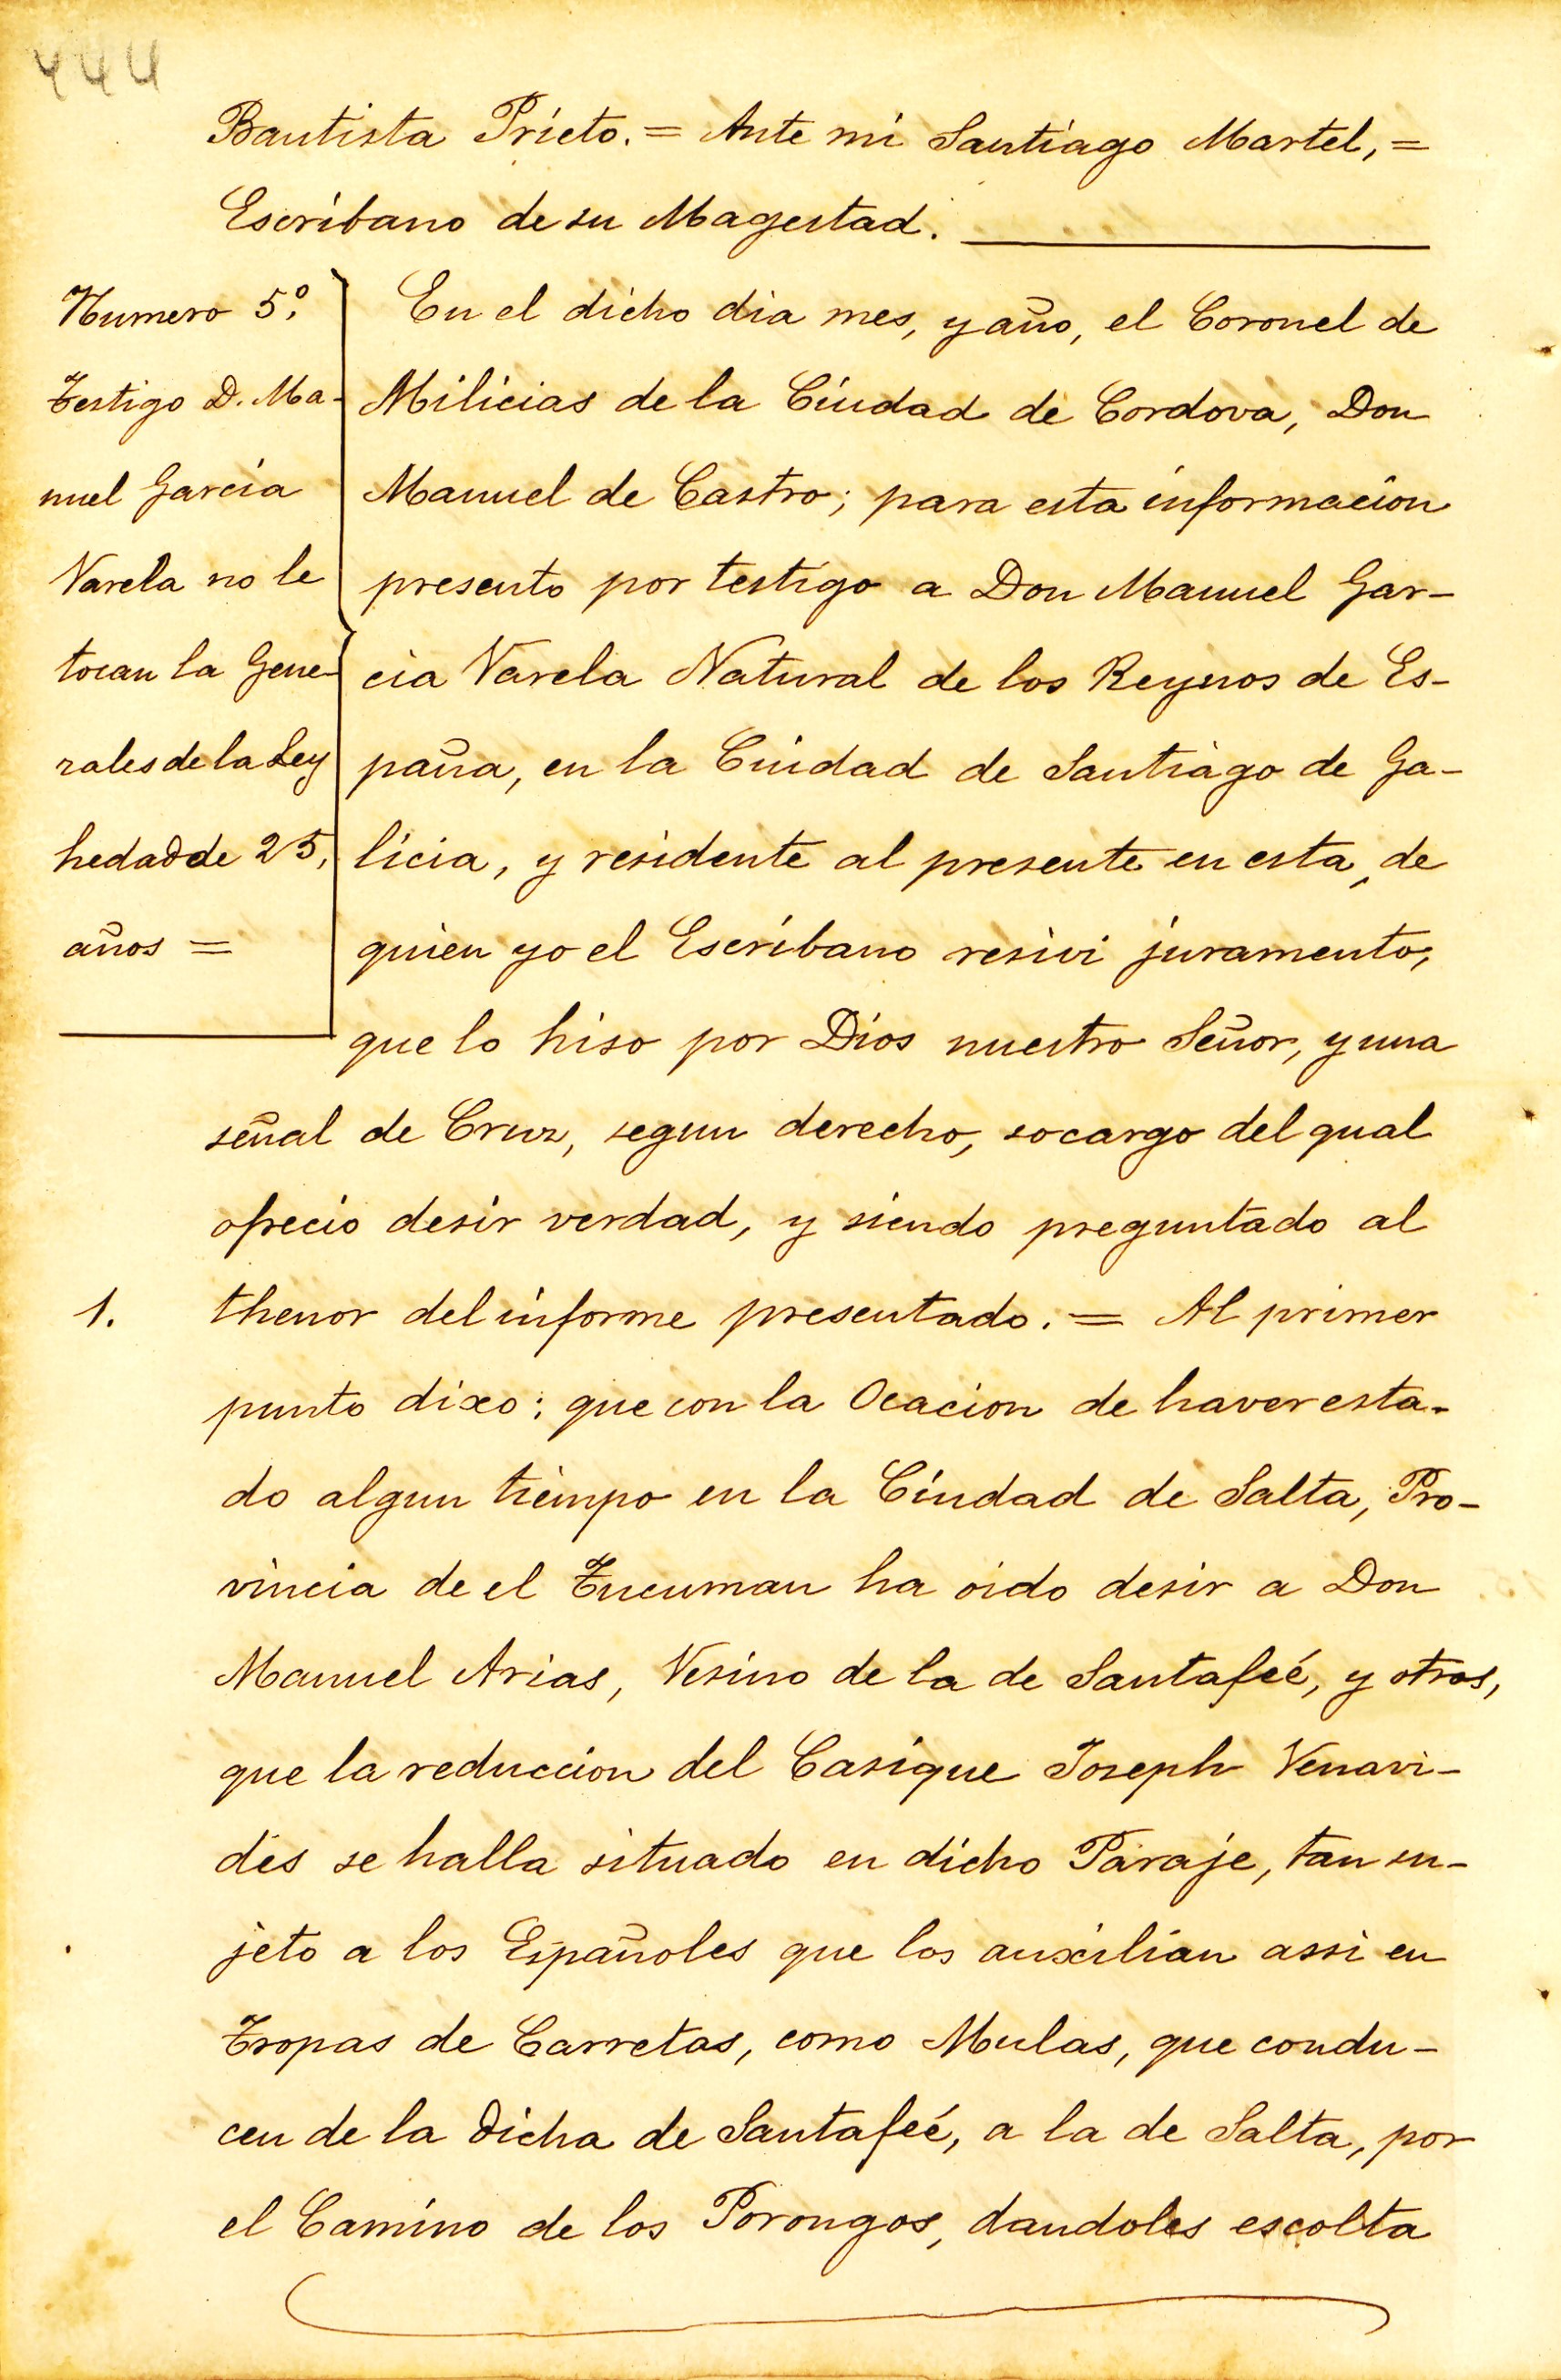 444
Bautista Prieto. = Ante mi Santiago Martel, =
Escribano de su Magestad.
Numero 5º.
Testigo D. Ma-
nuel Garcia
Varela no le
tocan la Gene-
rales de la Ley
hedad de 25,
años =
En el dicho dia mes, y año, el Coronel de
Milicias de la Ciudad de Cordova, Don
Manuel de Castro; para esta informacion
presento por testigo a Don Manuel Gar-
cia Varela Natural de los Reynos de Es-
paña, en la Ciudad de Santiago de Ga-
licia, y residente al presente en esta, de
quien yo el Escribano resivi juramento,
que lo hiso por Dios nuestro Señor, y una
señal de Cruz, segun derecho, socargo del qual
ofrecio desir verdad, y siendo preguntado al
1. thenor del informe presentado. = Al primer
punto dixo: que con la Ocacion de haver esta-
do algun tiempo en la Ciudad de Salta, Pro-
vincia de el Tucuman ha oido desir a Don
Manuel Arias, Vesino de la de Santafeé, y otros,
que la reduccion del Casique Joseph Venavi-
des se halla situado en dicho Paraje, tan su-
jeto a los Españoles que los auxilian assi en
Tropas de Carretas, como Mulas, que condu-
cen de la dicha de Santafeé, a la de Salta, por
el Camino de los Porongos, dandoles escolta